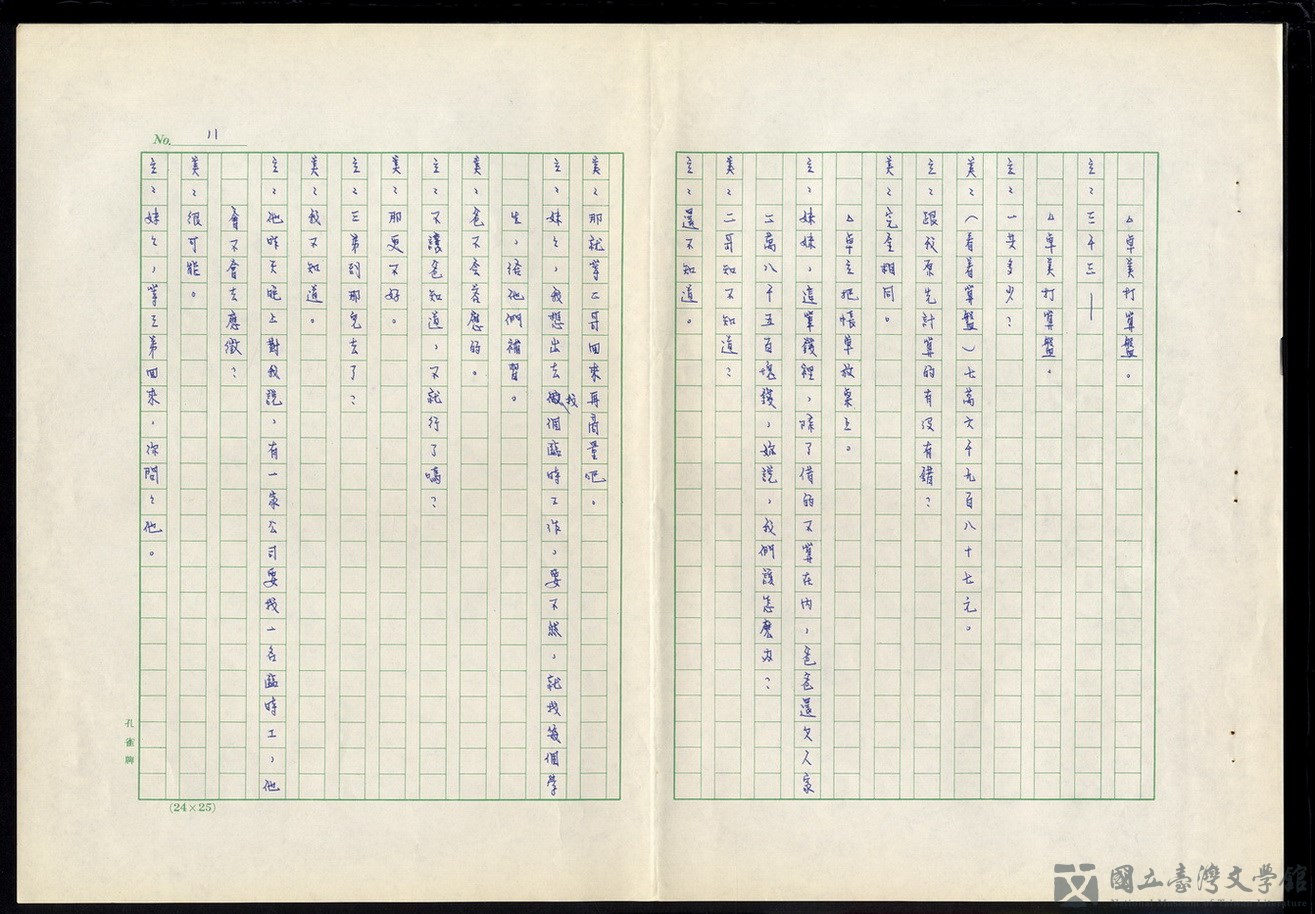 △卓美打算盤。
立:三千三——
△卓美打算盤。
立:一共多少?
美:(看着算盤)七萬六千九百八十七元。
立:跟我原先計算的有沒有錯?
美:完全相同。
△卓立把帳單放桌上。
立:妹妹,這筆錢裡,除了借的不算在內,爸爸還欠人家
二萬八千五百塊錢,妳說,我們該怎麼办?
美:二哥知不知道?
立:還不知道。
No. 11
美:那就等二哥回來再商量吧。
立:妹々,我想出去找個臨時工作,要不然,就找幾個學
生,給他們補習。
美:爸不会荅應的。
立:不讓爸知道,不就行了嗎?
美:那更不好。
立:三弟到那兒去了?
美:我不知道。
立:他昨天晚上對我說,有一家公司要找一名臨時工,他
會不會去應徵?
美:很可能。
立:妹々,等三弟回來,你問々他。
孔雀牌
(24×25)
國立臺灣文學館
National Museum of Taiwan Literature